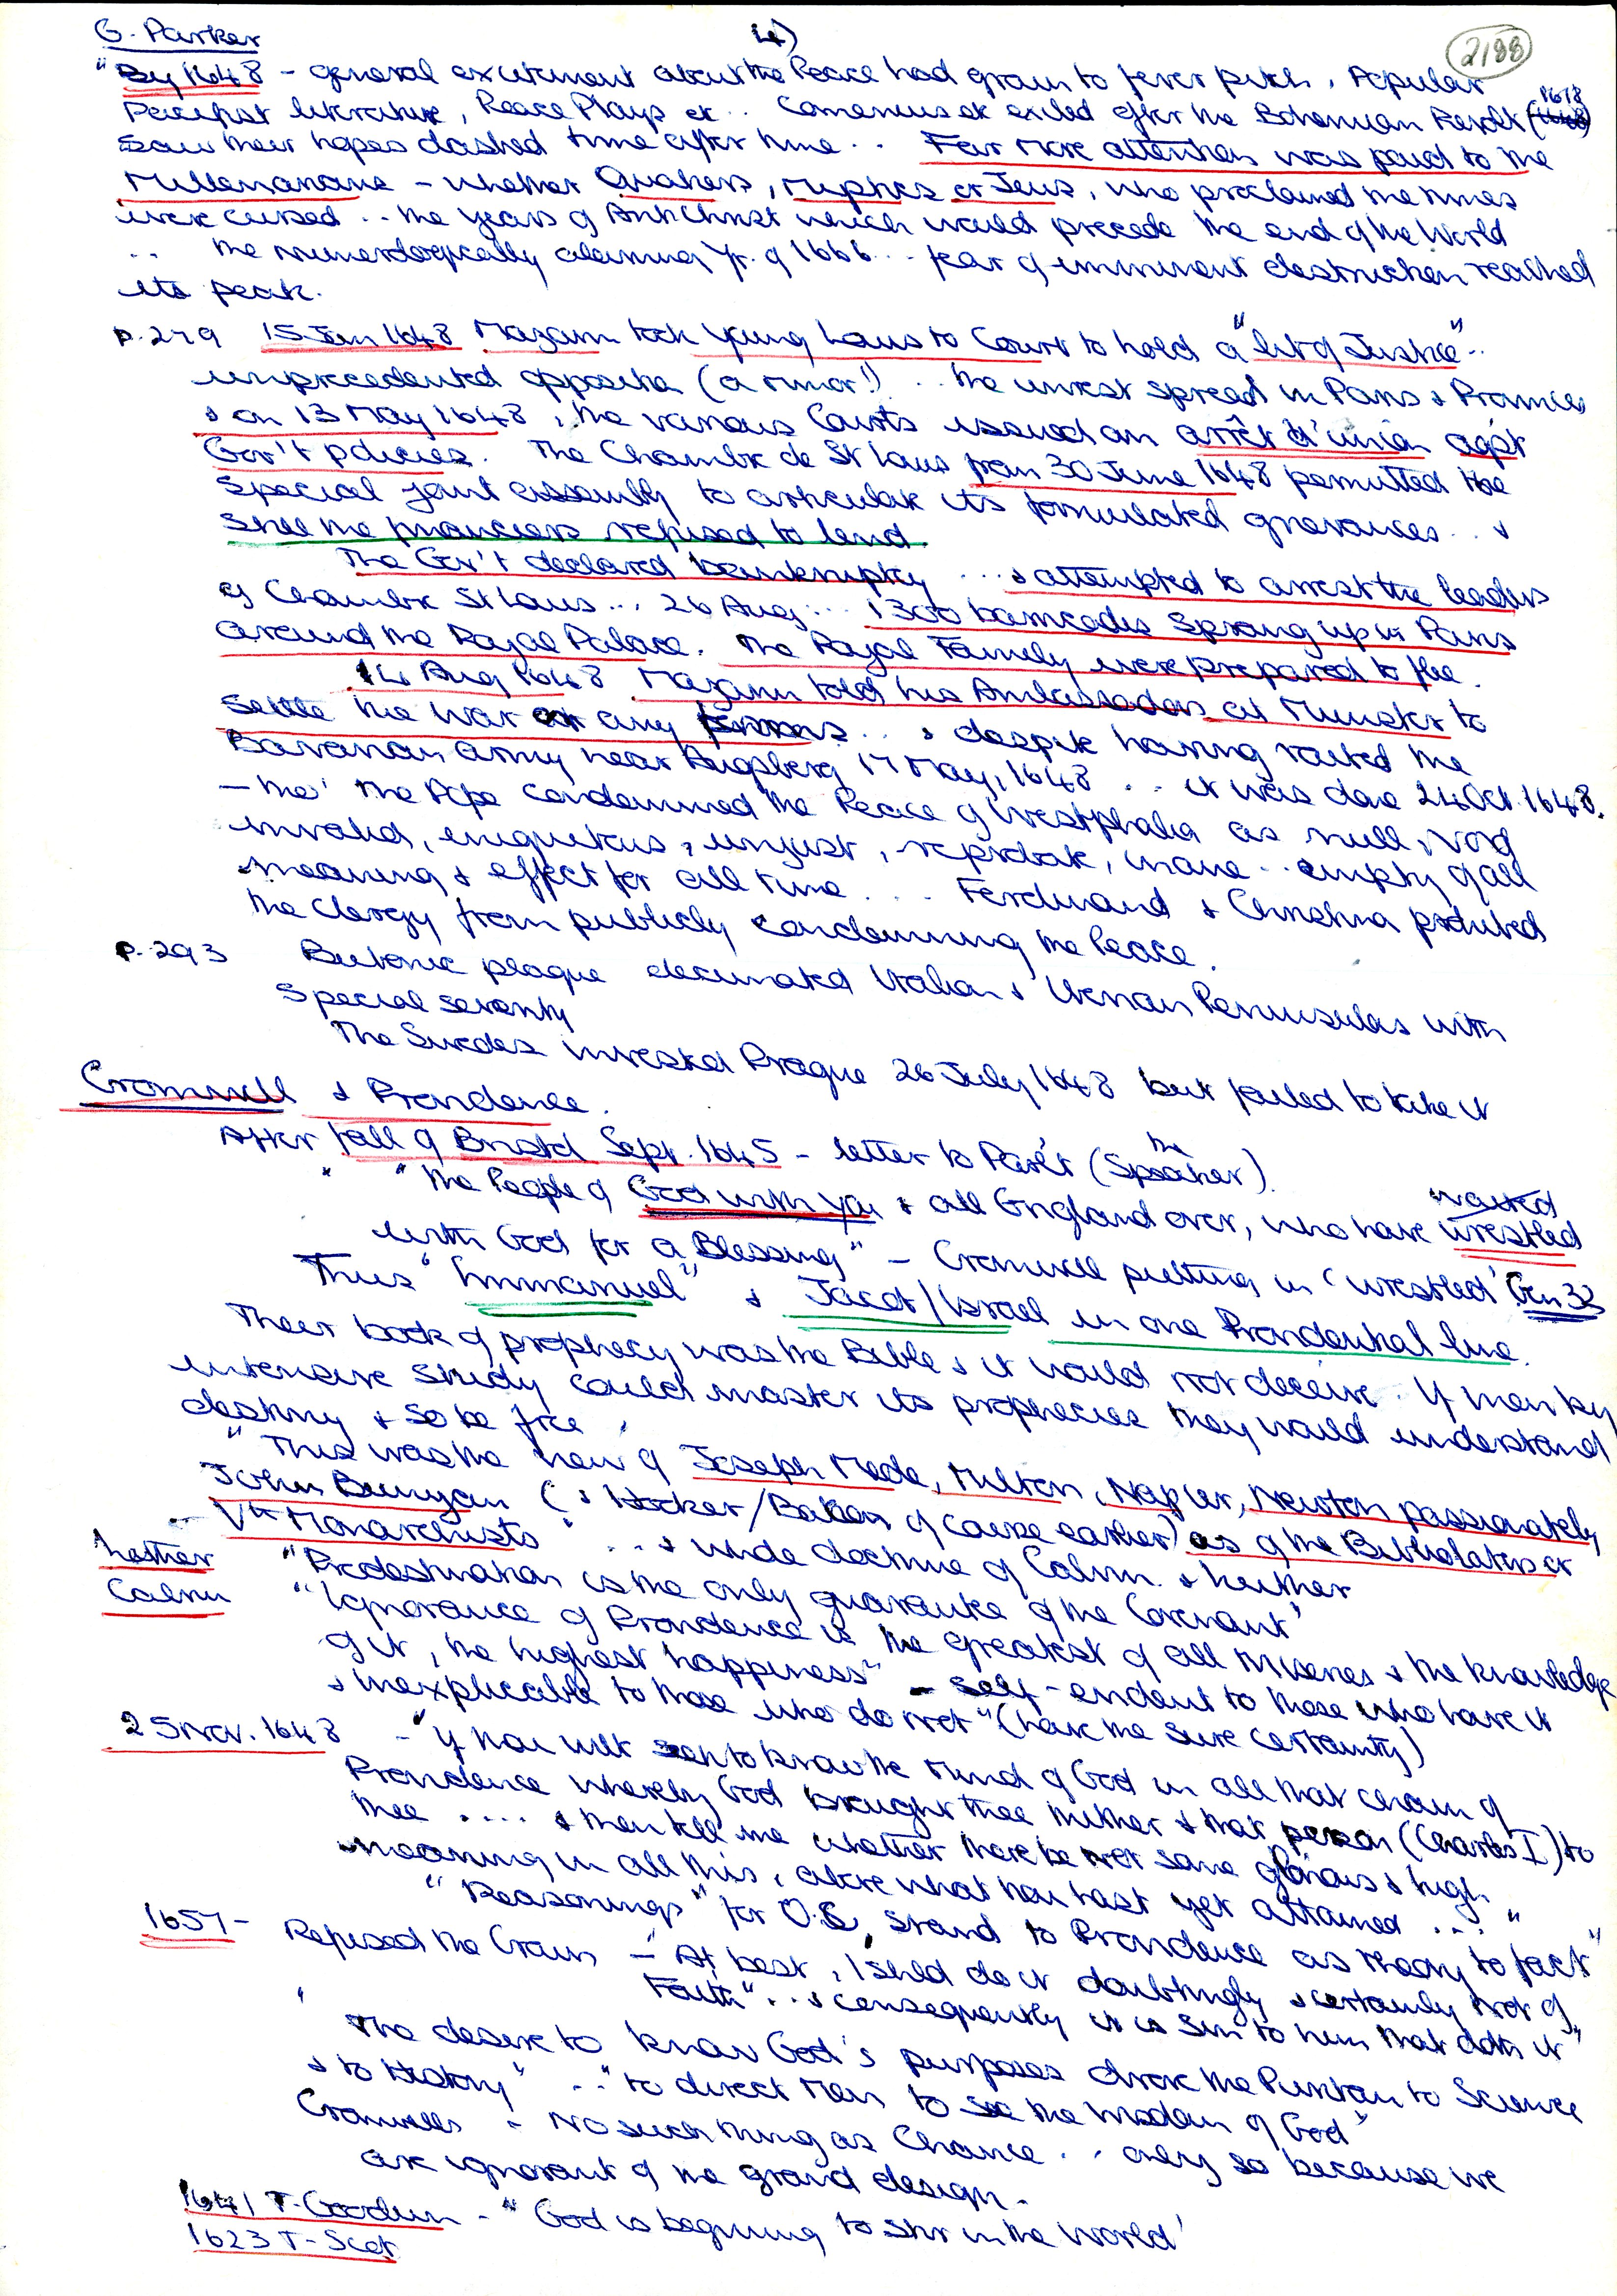 G. Parker
4)
2188
"By 1648 - general excitement about the Peace had grown to fever pitch, Popular
Pacifist literature, Peace Plays etc.. Comenius etc exiled after the Bohemian Revolt (1618)
saw their hopes dashed time after time .. Far more attention was paid to the
Millenarians - whether Quakers, Mystics or Jews, who proclaimed the times
were cursed .. the years of AntiChrist which would precede the end of the World
.. the numerologically alarming Yr. of 1666 ... fear of imminent destruction reached
its peak.
p. 279 15 Jan 1648 Mazarin took young Louis to Court to hold a "lit of Justice" ..
unprecedented opposition (a minor!) .. the unrest spread in Paris & Provinces
& on 13 May 1648, the various Courts issued an arrêt d'union agst
Gov't policies. The Chambre de St Louis from 30 June 1648 permitted the
special joint assembly to articulate its formulated grievances .. &
still the financiers refused to lend.
The Gov't declared bankruptcy ... & attempted to arrest the leaders
of Chambre St Louis ... 26 Aug ... 1300 barricades sprang up in Paris
around the Royal Palace. The Royal Family were prepared to flee.
14 Aug 1648 Mazarin told his Ambassadors at Munster to
settle the war on any terms .. & despite having routed the
Bavarian army near Augsberg 17 May, 1648 .. it was done 24 Oct. 1648.
- tho' the Pope condemned the Peace of Westphalia as null, void
invalid, iniquitous, unjust, reprobate, inane .. empty of all
meaning & effect for all time ... Ferdinand & Christina prohibited
the Clergy from publicly condemning the Peace.
p. 293 Bubonic plague decimated Italian & Iberian Peninsulas with
special severity
The Swedes invested Prague 26 July 1648 but failed to take it
Cromwell & Providence.
After fall of Bristol Sept. 1645 - letter to Parl't (the Speaker).
" "the People of God with you & all England over, who have waited wrestled
with God for a Blessing" - Cromwell putting in 'wrestled' Gen 32
Thus "Immanuel" & Jacob/Israel in one Providential line.
Their book of prophecy was the Bible & it would not deceive. If men by
intensive study could master its prophecies they would understand
destiny & so be free.
"This was the view of Joseph Mede, Milton, Napier, Newton passionately
John Bunyan (& Hooker/Bacon of course earlier) as of the Bibliolaters or
.. Vth Monarchists" ... & whole doctrine of Calvin & Luther
Luther "Predestination is the only guarantee of the Covenant'
Calvin "Ignorance of Providence is the greatest of all miseries & the knowledge
of it, the highest happiness" - self-evident to those who have it
& inexplicable to those who do not" (have the sure certainty)
25 Nov. 1648 - "If thou wilt seek to know the mind of God in all that chain of
Providence whereby God brought thee thither & that person (Charles I) to
thee .... & then tell me whether there be not some glorious & high
meaning in all this, above what thou hast yet attained ... "
"Reasonings" for O.C, stand to Providence as theory to fact"
1657 - Refused the Crown - 'At best, I shld do it doubtingly & certainly not of
Faith" .. & consequently it is sin to him that doth it"
' The desire to know God's purposes drove the Puritan to Science
& to History" .. "to direct men to see the wisdom of God"
Cromwell - No such thing as Chance .. only so because we
are ignorant of the grand design.
1641 T. Goodwin - "God is beginning to stir in the World'
1623 T. Scot